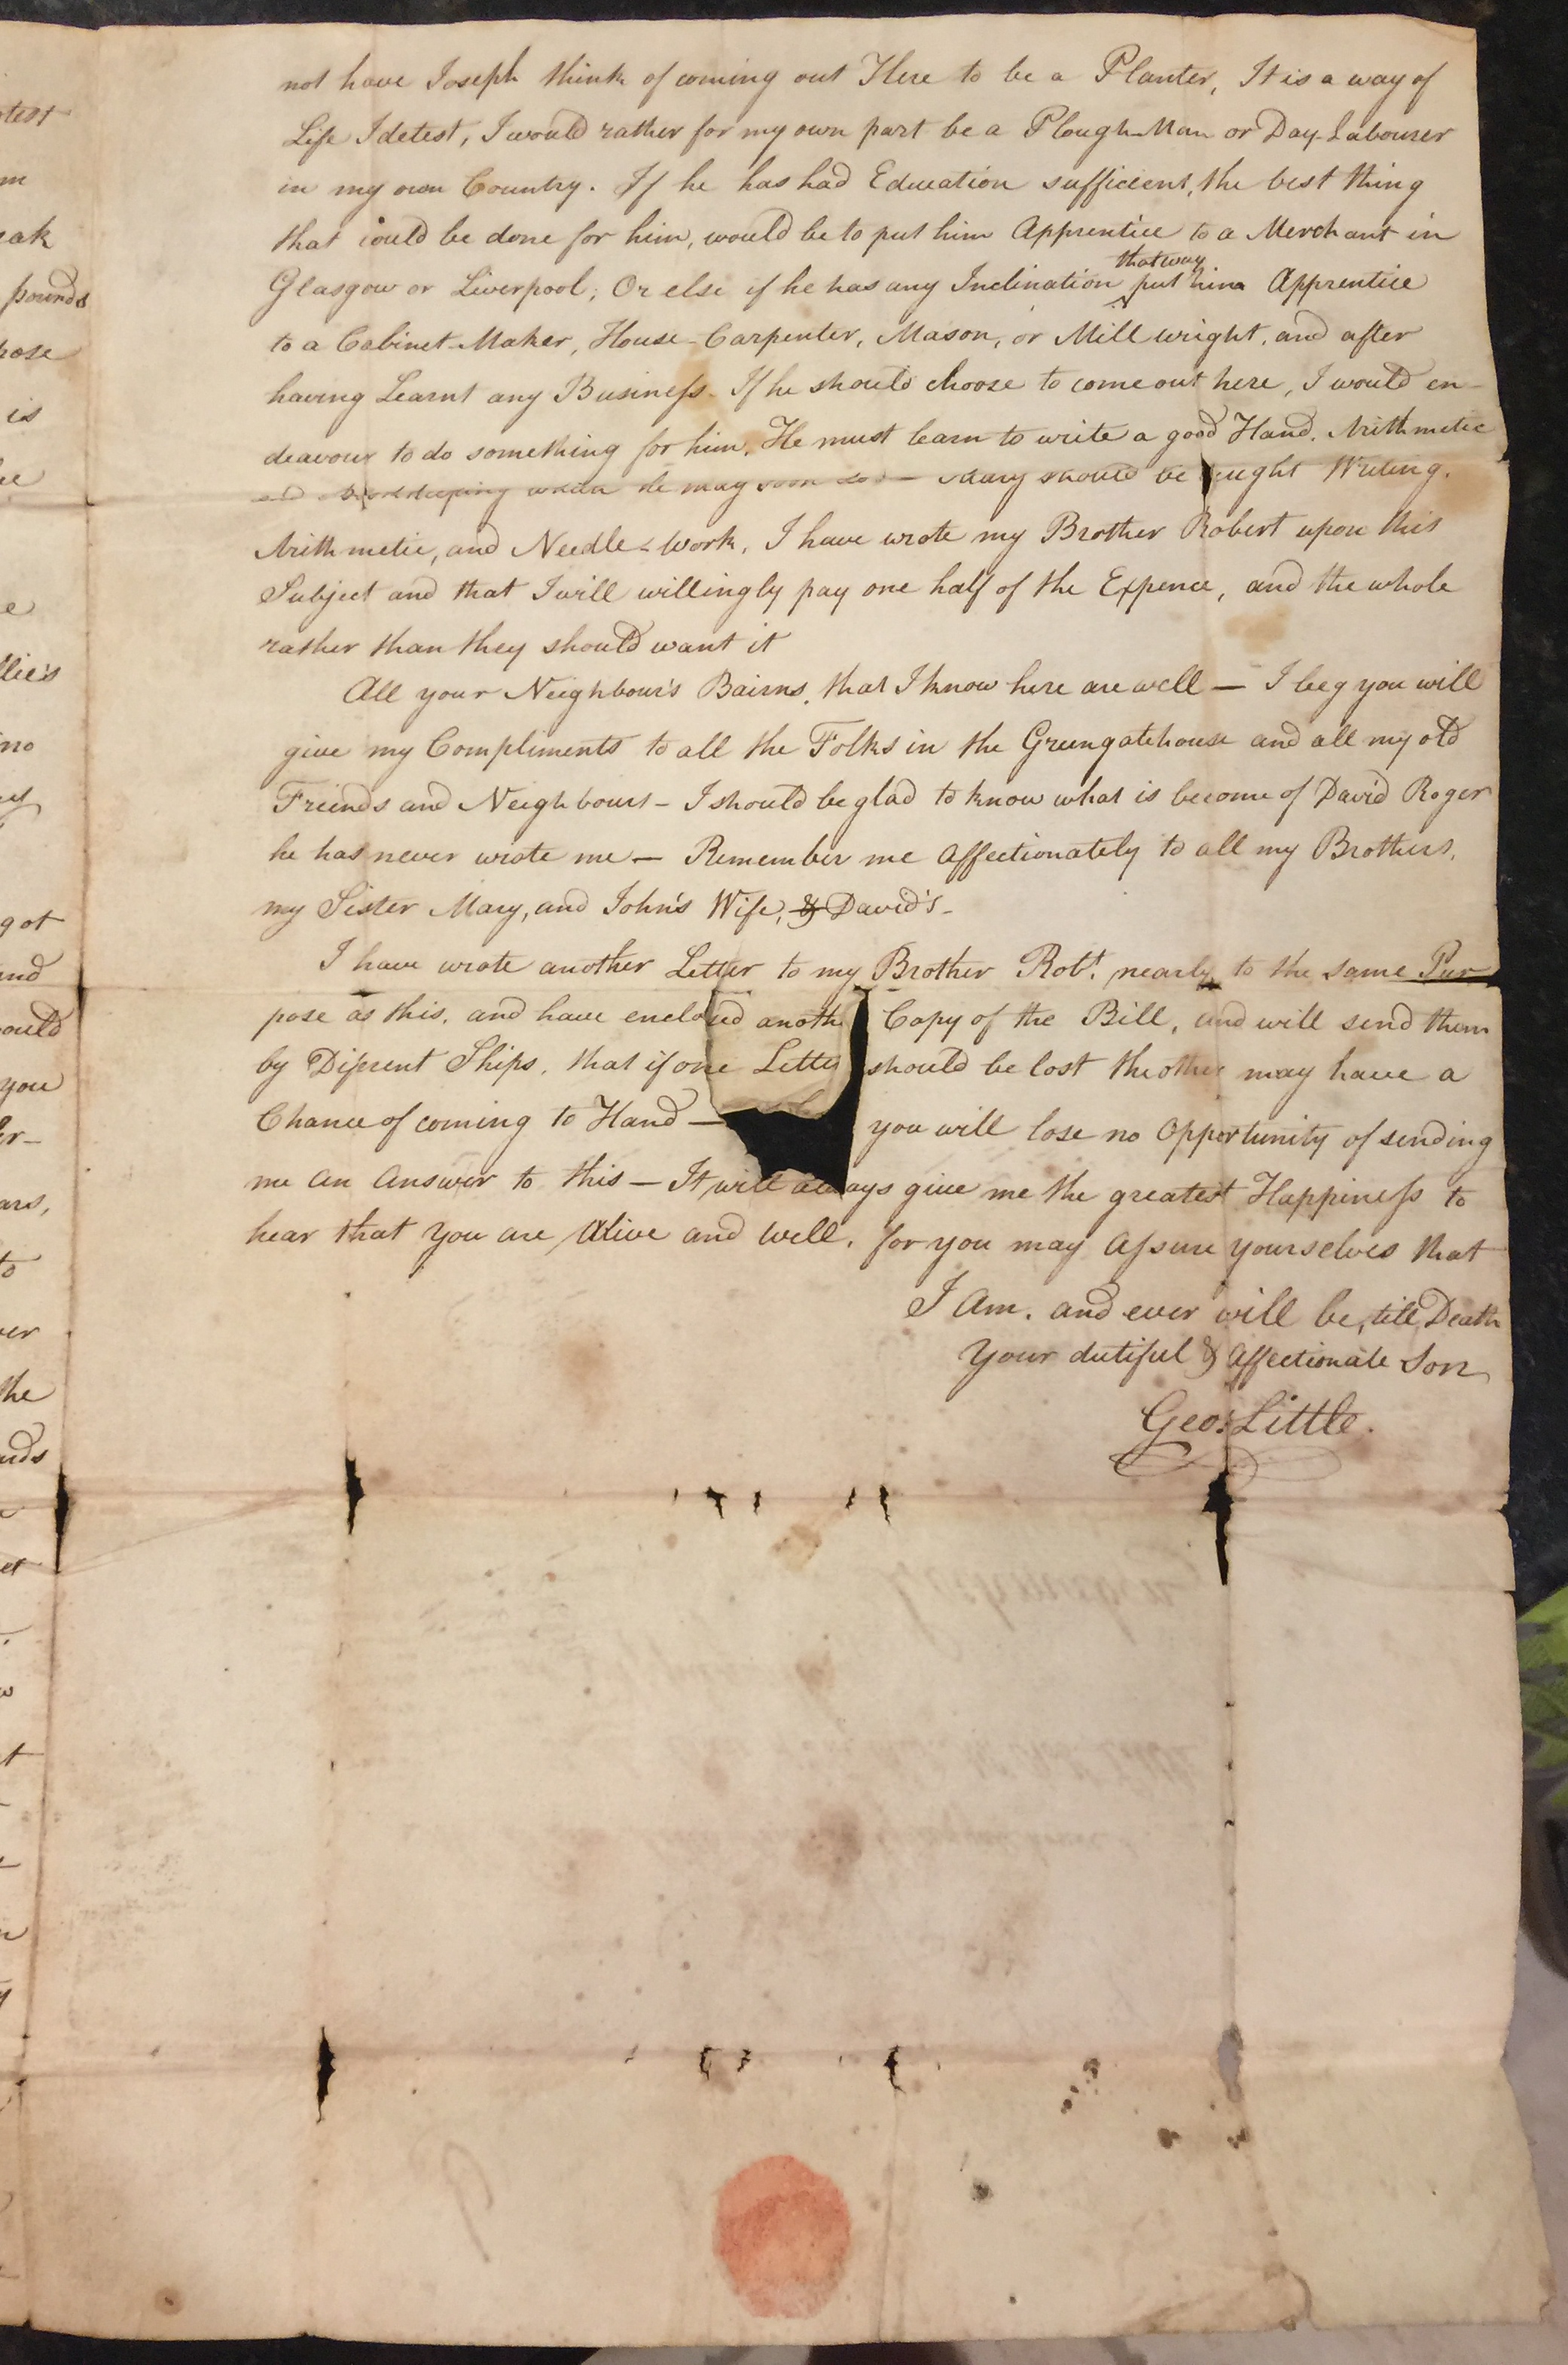 not have Joseph think of coming out Here to be a Planter, It is a way of
Life I detest, I would rather for my own part be a Plough-Man or Day-Labourer
in my own Country. If he has had Education sufficient, the best thing
that could be done for him, would be to put him Apprentice to a Merchant in
that way
Glasgow or Liverpool; Or else if he has any Inclination ^ put him Apprentice
to a Cabinet-Maker, House-Carpenter, Mason, or Mill wright, and after
having Learnt any Business. If he should choose to come out here, I would en-
deavour to do something for him. He must learn to write a good Hand. Arithmetic
and Bookkeeping which he may soon do — Mary should be taught Writing.
Arithmetic, and Needle-work, I have wrote my Brother Robert upon this
Subject and that I will willingly pay one half of the Expence, and the whole
rather than they should want it
All your Neighbour's Bairns, that I know here are well — I beg you will
give my Compliments to all the Folks in the Greengatehouse and all my old
Friends and Neighbours - I should be glad to know what is become of David Roger
he has never wrote me — Remember me Affectionately to all my Brothers,
my Sister Mary, and John's Wife, & David's -
I have wrote another Letter to my Brother Robt. nearly to the same Pur
pose as this, and have enclosed anoth Copy of the Bill, and will send them
by Different Ships, that if one Letter should be lost the other may have a
Chance of coming to Hand — you will lose no Opportunity of sending
me an Answer to this — It will always give me the greatest Happiness to
hear that you are Alive and Well, for you may Assure yourselves that
I Am, and ever will be, till Death
Your dutiful & Affectionate Son
Geo: Little.